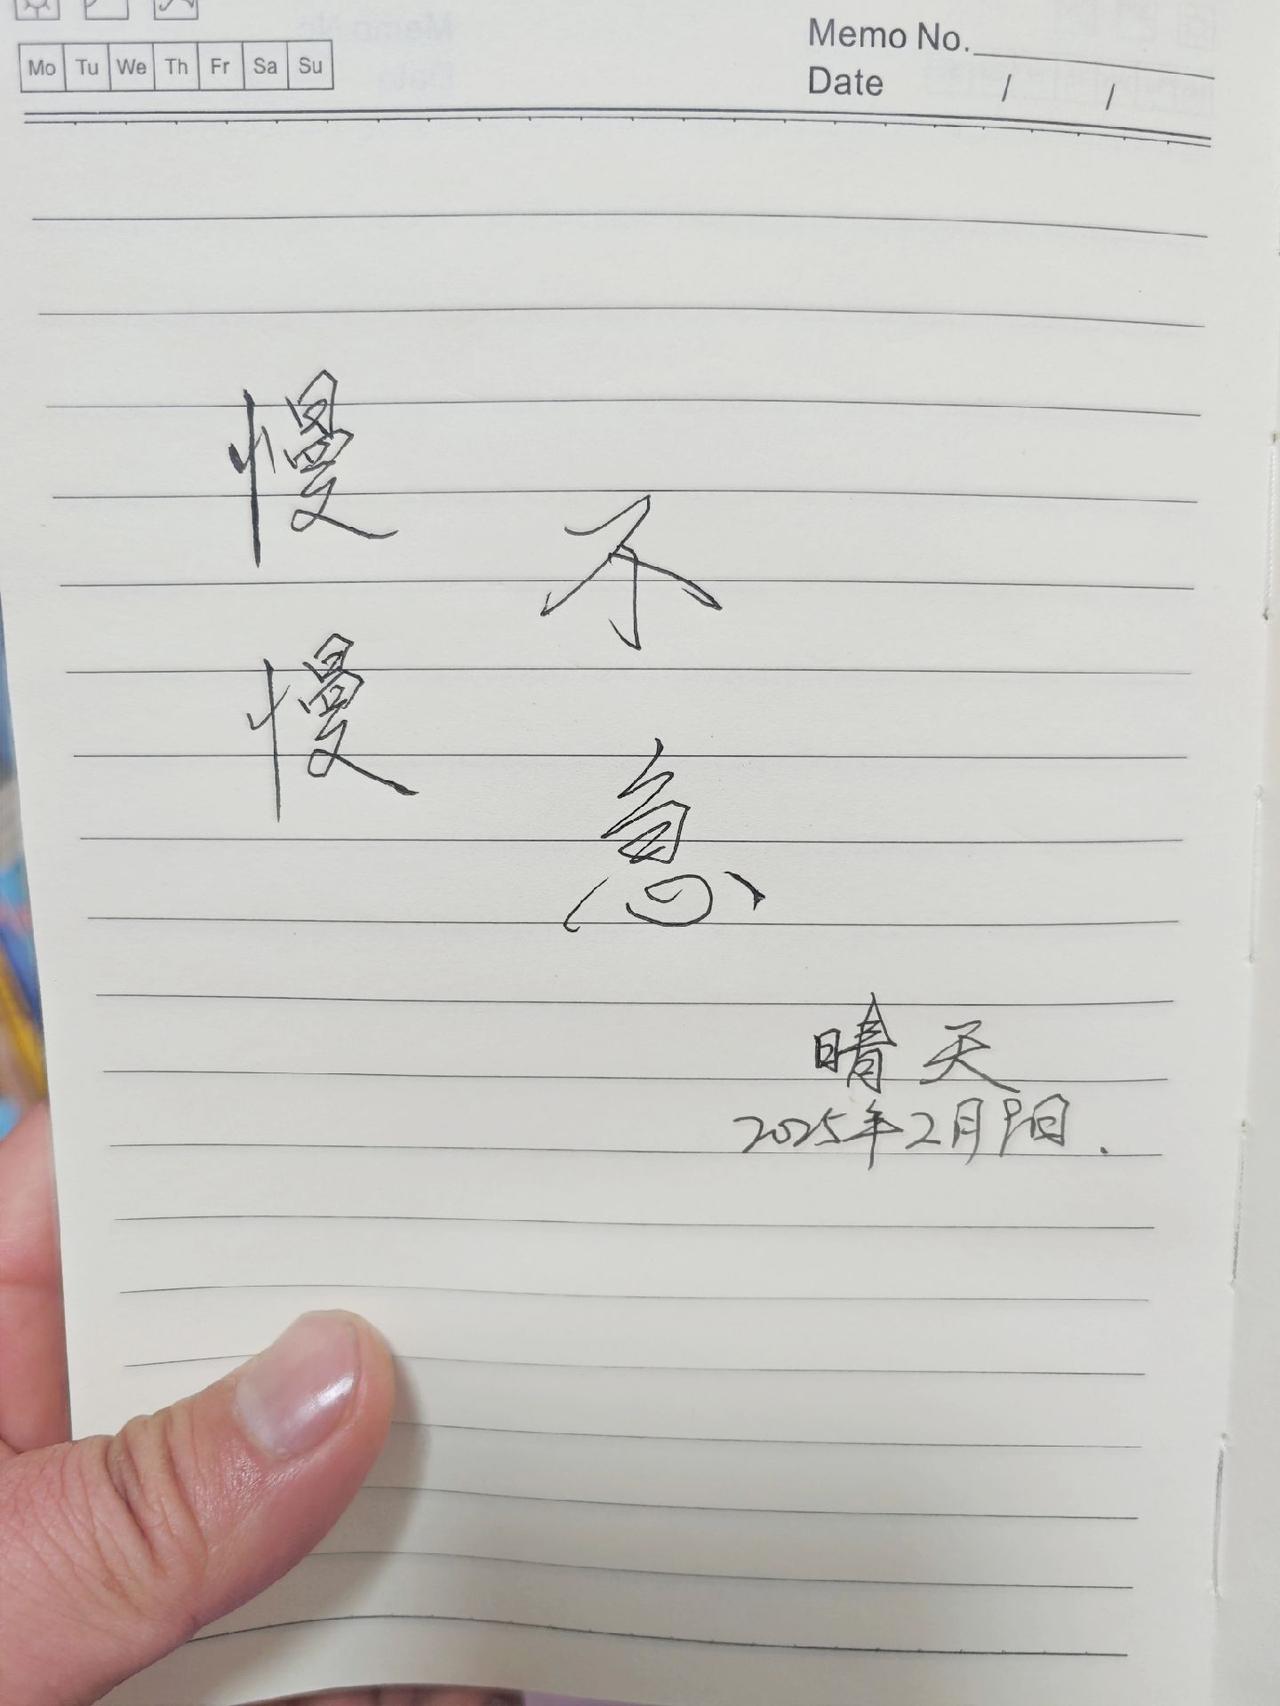 Mo Tu We Th Fr Sa Su
Memo No.
Date / /
慢慢
不急
晴天
2025年2月9日.